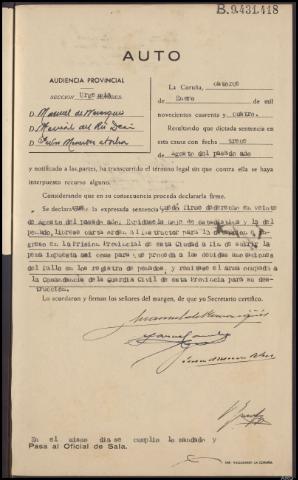 B.9.431.418
AUTO
AUDIENCIA PROVINCIAL
SECCIÓN Urgencia
D. Manuel de
D. Marcial del Río
D. Julio
La Coruña, catorce
de Enero de mil
novecientos cuarenta y cuatro.
Resultando que dictada sentencia en
esta causa con fecha trece
de Agosto del pasado año
y notificada a las partes, ha transcurrido el término legal sin que contra ella se haya
interpuesto recurso alguno.
Considerando que en su consecuencia procede declararla firme.
Se declara que la expresada sentencia quedó firme de derecho en veinte
de Agosto del pasado año.
pesado, líbrese carta orden al Instructor para la
greso en la Prisión Provincial de esta Ciudad a fin de sufrir la
pena impuesta así como para que proceda a las debidas anotaciones
del fallo en los registro de penados, y remítase el arma ocupada a
la Comandancia de la Guardia Civil de esta Provincia para su des-
trucción.
Lo acordaron y firman los señores del margen, de que yo Secretario certifico.
En el mismo día se cumplió lo mandado y
Pasa al Oficial de Sala.